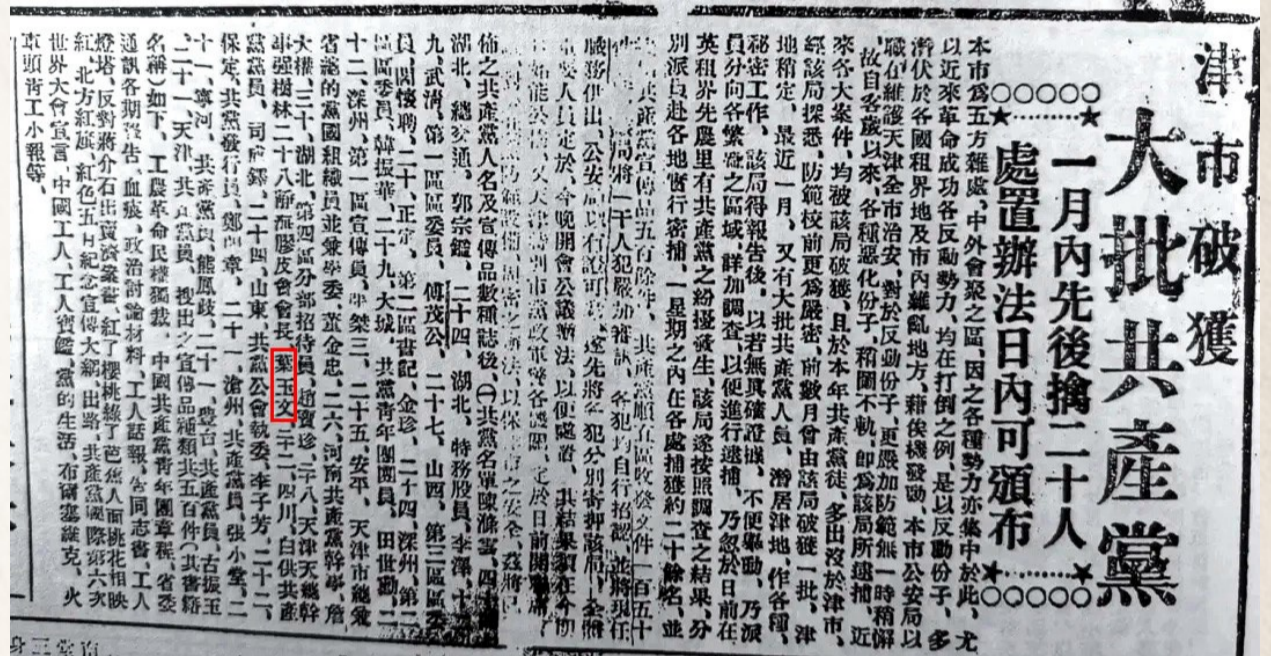 津市破獲
大批共產黨
一月內先後擒二十人
處置辦法日內可頒布
本市爲五方雜處、中外會聚之區、因之各種勢力亦集中於此、尤
以近來革命成功各反動勢力、均在打倒之例、是以反動份子、多
潛伏於各國租界地及市內雜亂地方、藉俟機發動、本市公安局以
職在維護天津全市治安、對於反動份子、更嚴加防範無一時稍懈
故自客歲以來、各種惡化份子、稍圖不軌、即爲該局所逮捕、近
來各大案件、均被該局破獲、且於本年共產黨徒、多出沒於津市、
經該局探悉、防範校前更爲嚴密、前數月曾由該局破獲一批、津
地稍定、最近一月、又有大批共產黨人員、潛居津地、作各種、
祕密工作、該局得報告後、以若無眞確證據、不便舉動、乃派
員分向各繁盛之區域、詳加調查、以便進行逮捕、乃忽於日前在
英租界先農里有共產黨之紛擾發生、該局遂按照調查之結果、分
別派員赴各地實行密捕、一星期之內在各處捕獲約二十餘名、並
共產黨宣傳品五百餘件、共產黨順直區收發文件一百五十
局將一干人犯嚴加審訊、各犯均自行招認、並將現任
職務供出、公安局以有證可 遂先將各犯分別寄押該局、
要人員定於、今晚開會公議辦法、以便處治、其結果須在今
始能公布、又天津特別市黨政軍警各機關、定於日前開聯席
以保 市之安全、茲將
佈之共產黨人名及宣傳品數種誌後、㈠共黨名單陳滌雲、四
湖北、總交通、郭宗鑑、二十四、湖北、特務股員、李澤、十
九、武淸、第一區區委員、傅茂公、二十七、山西、第三區區委
員、閻懷聘、二十、正定、第二區書記、金珍、二十四、深州、第二
區區委員、韓振華、二十九、大城、共黨青年團團員、田世勤、二
十二、深州、第一區宣傳員、 桀三、二十五、安平、天津市總彙
省認的黨國組織員並兼學委、董金忠、二六、河南共產黨幹學、詹
大權、三十、湖北、第四區分部招待員、趙寶珍、二十八、天津天總幹
事强樹林二十八靜海膠皮會會長葉玉文二十二、四川、自供共產
黨黨員、司 鐸、二十四、山東、共黨公會執委、李子芳、二十二、
保定、共黨發行員、鄭 章、二十一、滄州、共產黨員、張小堂、二
十一、寧河、共產黨員、熊鳳歧、二十一、豐台、共產黨員、古振玉
、二十一、天津、共產黨員、搜出之宣傳品種類共五百件（其書籍
名稱）如下、工農革命民權獨裁、中國共產黨靑年團章程、省委
通訊各期 告、血痕、政治討論材料、工人話報、告同志書、工人
燈塔、反對蔣介石出賣濟案書、紅了櫻桃綠了芭蕉人面桃花相映
紅、北方紅旗、紅色五月紀念宣傳大綱、出路、共產黨國際第六次
世界大會宣言、中國工人、工人寶鑑、黨的生活、布爾塞維克、火
車頭靑工小報等、